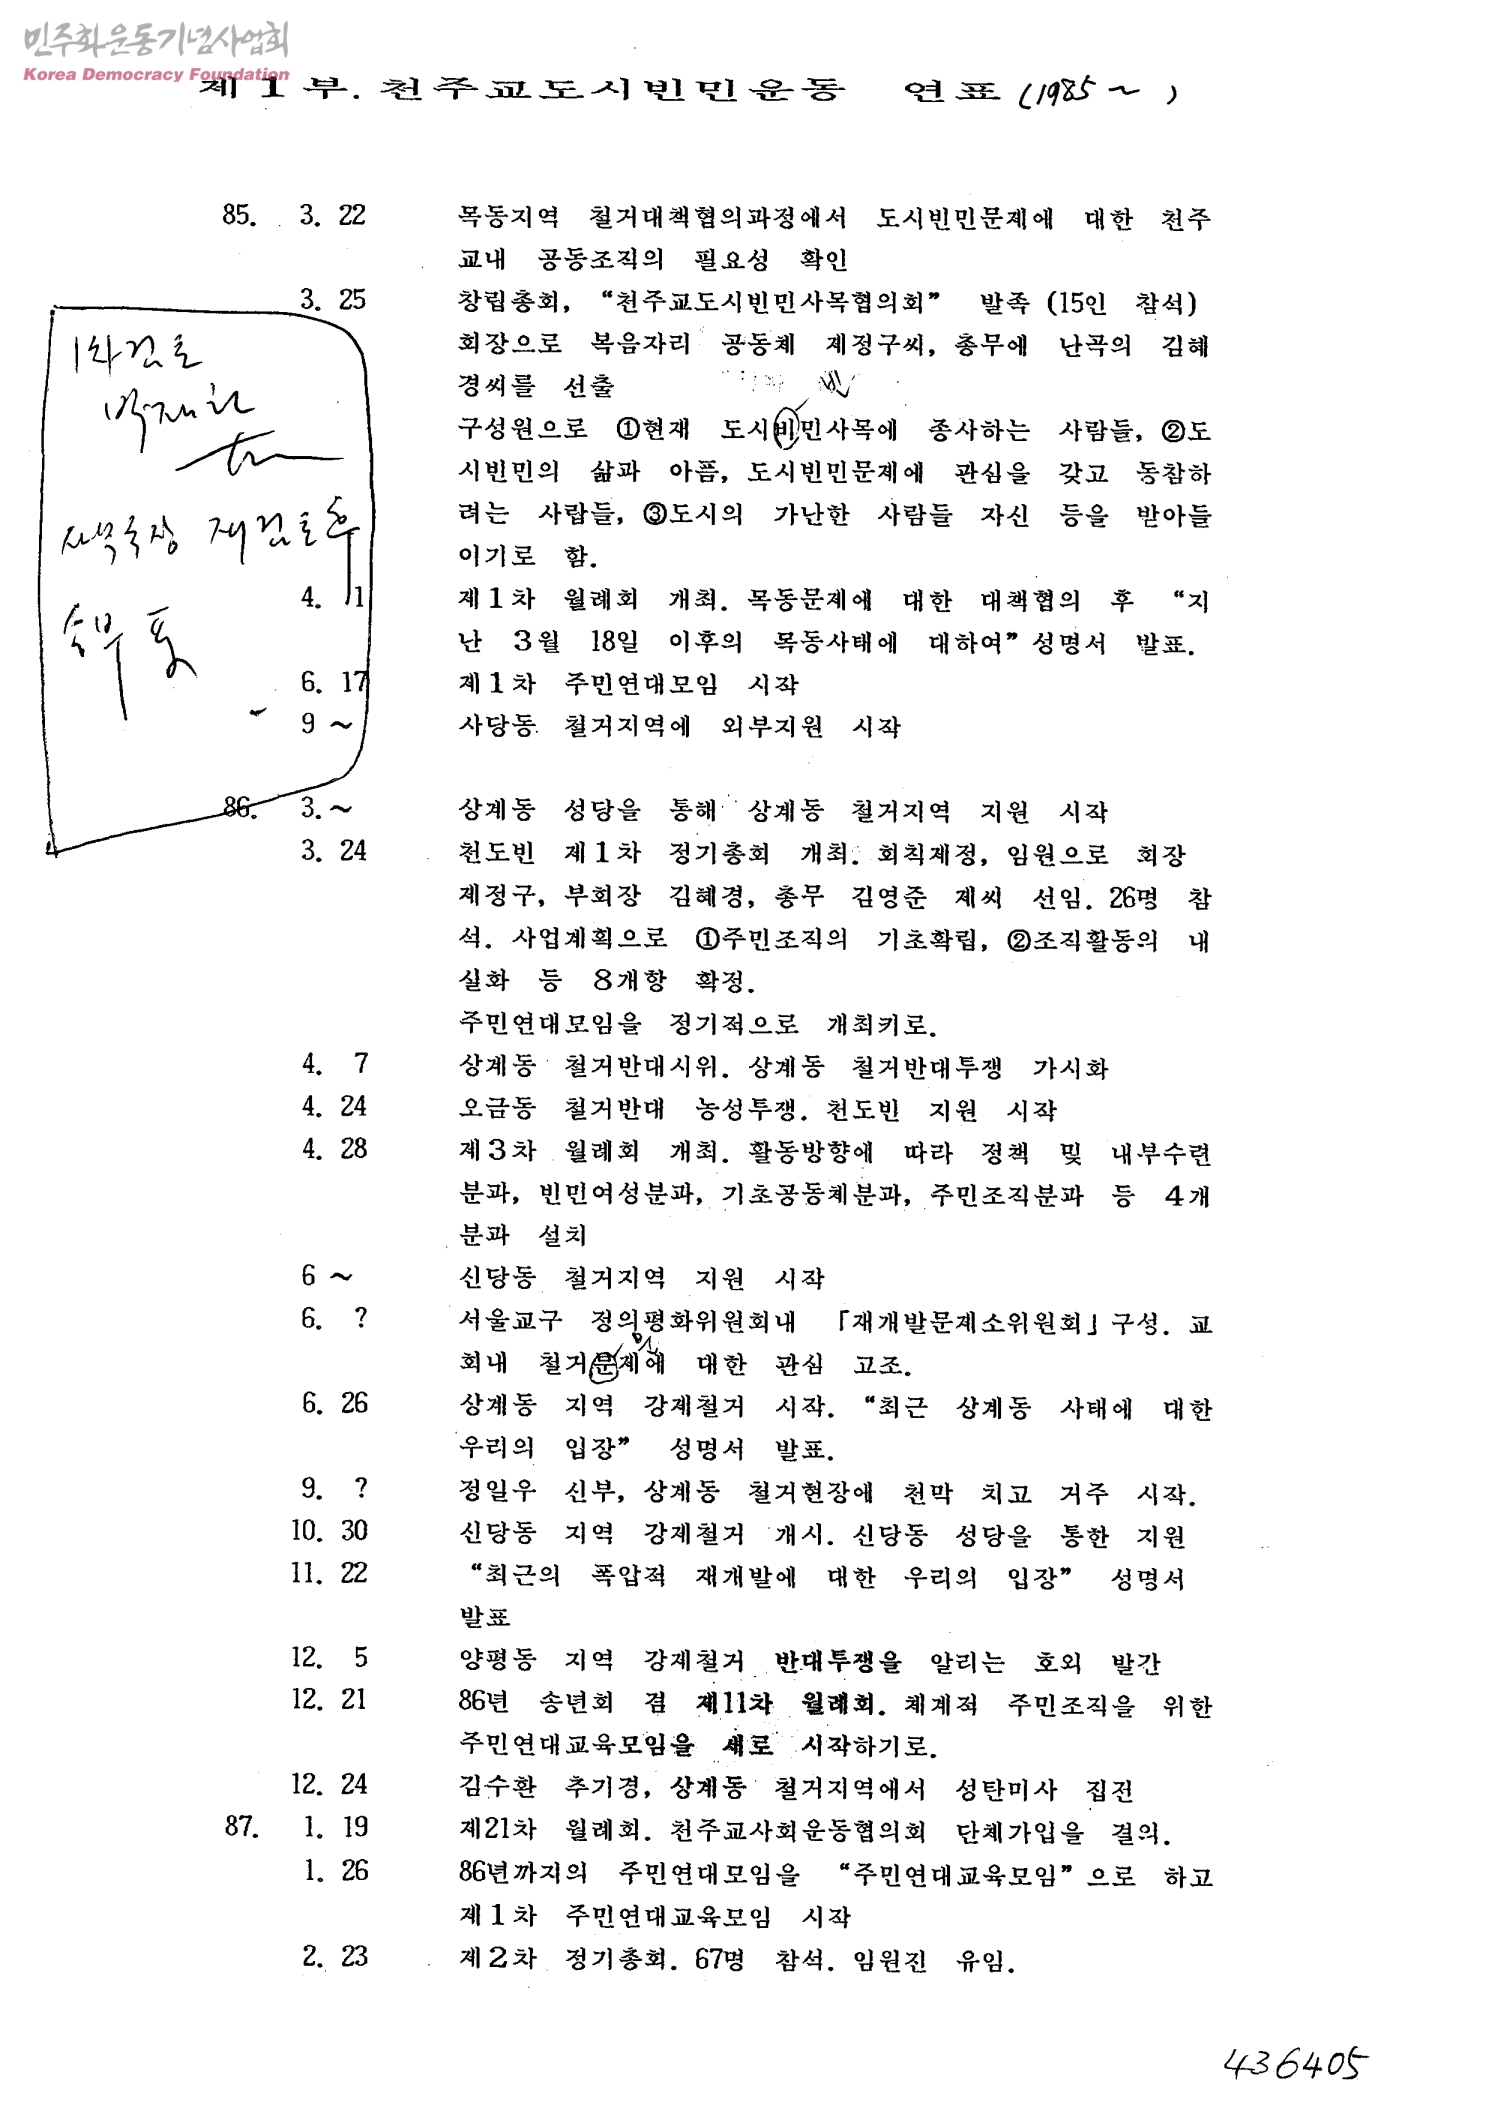 민주화운동기념사업회
Korea Democracy Foundation
제1부. 천주교도시빈민운동 연표 (1985~ )
85. 3. 22 목동지역 철거대책협의과정에서 도시빈민문제에 대한 천주
교내 공동조직의 필요성 확인
3. 25 창립총회, “천주교도시빈민사목협의회” 발족 (15인 참석)
회장으로 복음자리 공동체 제정구씨, 총무에 난곡의 김혜
경씨를 선출
빈
구성원으로 ①현재 도시비민사목에 종사하는 사람들, ②도
시빈민의 삶과 아픔, 도시빈민문제에 관심을 갖고 동참하
려는 사람들, ③도시의 가난한 사람들 자신 등을 받아들
이기로 함.
4. 1 제1차 월례회 개최. 목동문제에 대한 대책협의 후 “지
난 3월 18일 이후의 목동사태에 대하여” 성명서 발표.
6. 17 제1차 주민연대모임 시작
9 ~ 사당동 철거지역에 외부지원 시작
1차검토
재검토후
송부
86. 3. ~ 상계동 성당을 통해 상계동 철거지역 지원 시작
3. 24 천도빈 제1차 정기총회 개최. 회칙제정, 임원으로 회장
제정구, 부회장 김혜경, 총무 김영준 제씨 선임. 26명 참
석. 사업계획으로 ①주민조직의 기초확립, ②조직활동의 내
실화 등 8개항 확정.
주민연대모임을 정기적으로 개최키로.
4. 7 상계동 철거반대시위. 상계동 철거반대투쟁 가시화
4. 24 오금동 철거반대 농성투쟁. 천도빈 지원 시작
4. 28 제3차 월례회 개최. 활동방향에 따라 정책 및 내부수련
분과, 빈민여성분과, 기초공동체분과, 주민조직분과 등 4개
분과 설치
6 ~ 신당동 철거지역 지원 시작
6. ? 서울교구 정의평화위원회내 「재개발문제소위원회」구성. 교
회내 철거문제에 대한 관심 고조.
6. 26 상계동 지역 강제철거 시작. “최근 상계동 사태에 대한
우리의 입장” 성명서 발표.
9. ? 정일우 신부, 상계동 철거현장에 천막 치고 거주 시작.
10. 30 신당동 지역 강제철거 개시. 신당동 성당을 통한 지원
11. 22 “최근의 폭압적 재개발에 대한 우리의 입장” 성명서
발표
12. 5 양평동 지역 강제철거 반대투쟁을 알리는 호외 발간
12. 21 86년 송년회 겸 제11차 월례회. 체계적 주민조직을 위한
주민연대교육모임을 새로 시작하기로.
12. 24 김수환 추기경, 상계동 철거지역에서 성탄미사 집전
87. 1. 19 제21차 월례회. 천주교사회운동협의회 단체가입을 결의.
1. 26 86년까지의 주민연대모임을 “주민연대교육모임”으로 하고
제1차 주민연대교육모임 시작
2. 23 제2차 정기총회. 67명 참석. 임원진 유임.
436405